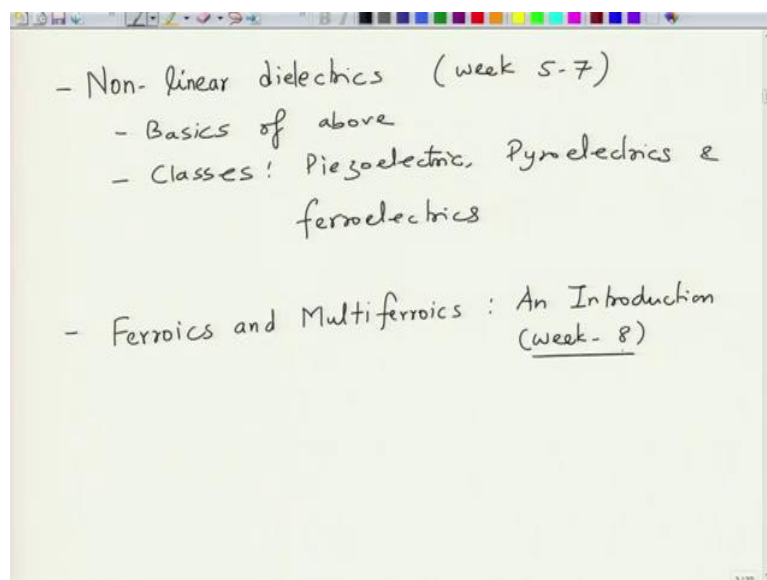 - Non-linear dielectrics (week 5-7)
- Basics of above
- Classes: Piezoelectric, Pyroelectrics &
ferroelectrics
- Ferroics and Multiferroics : An Introduction
(week- 8)